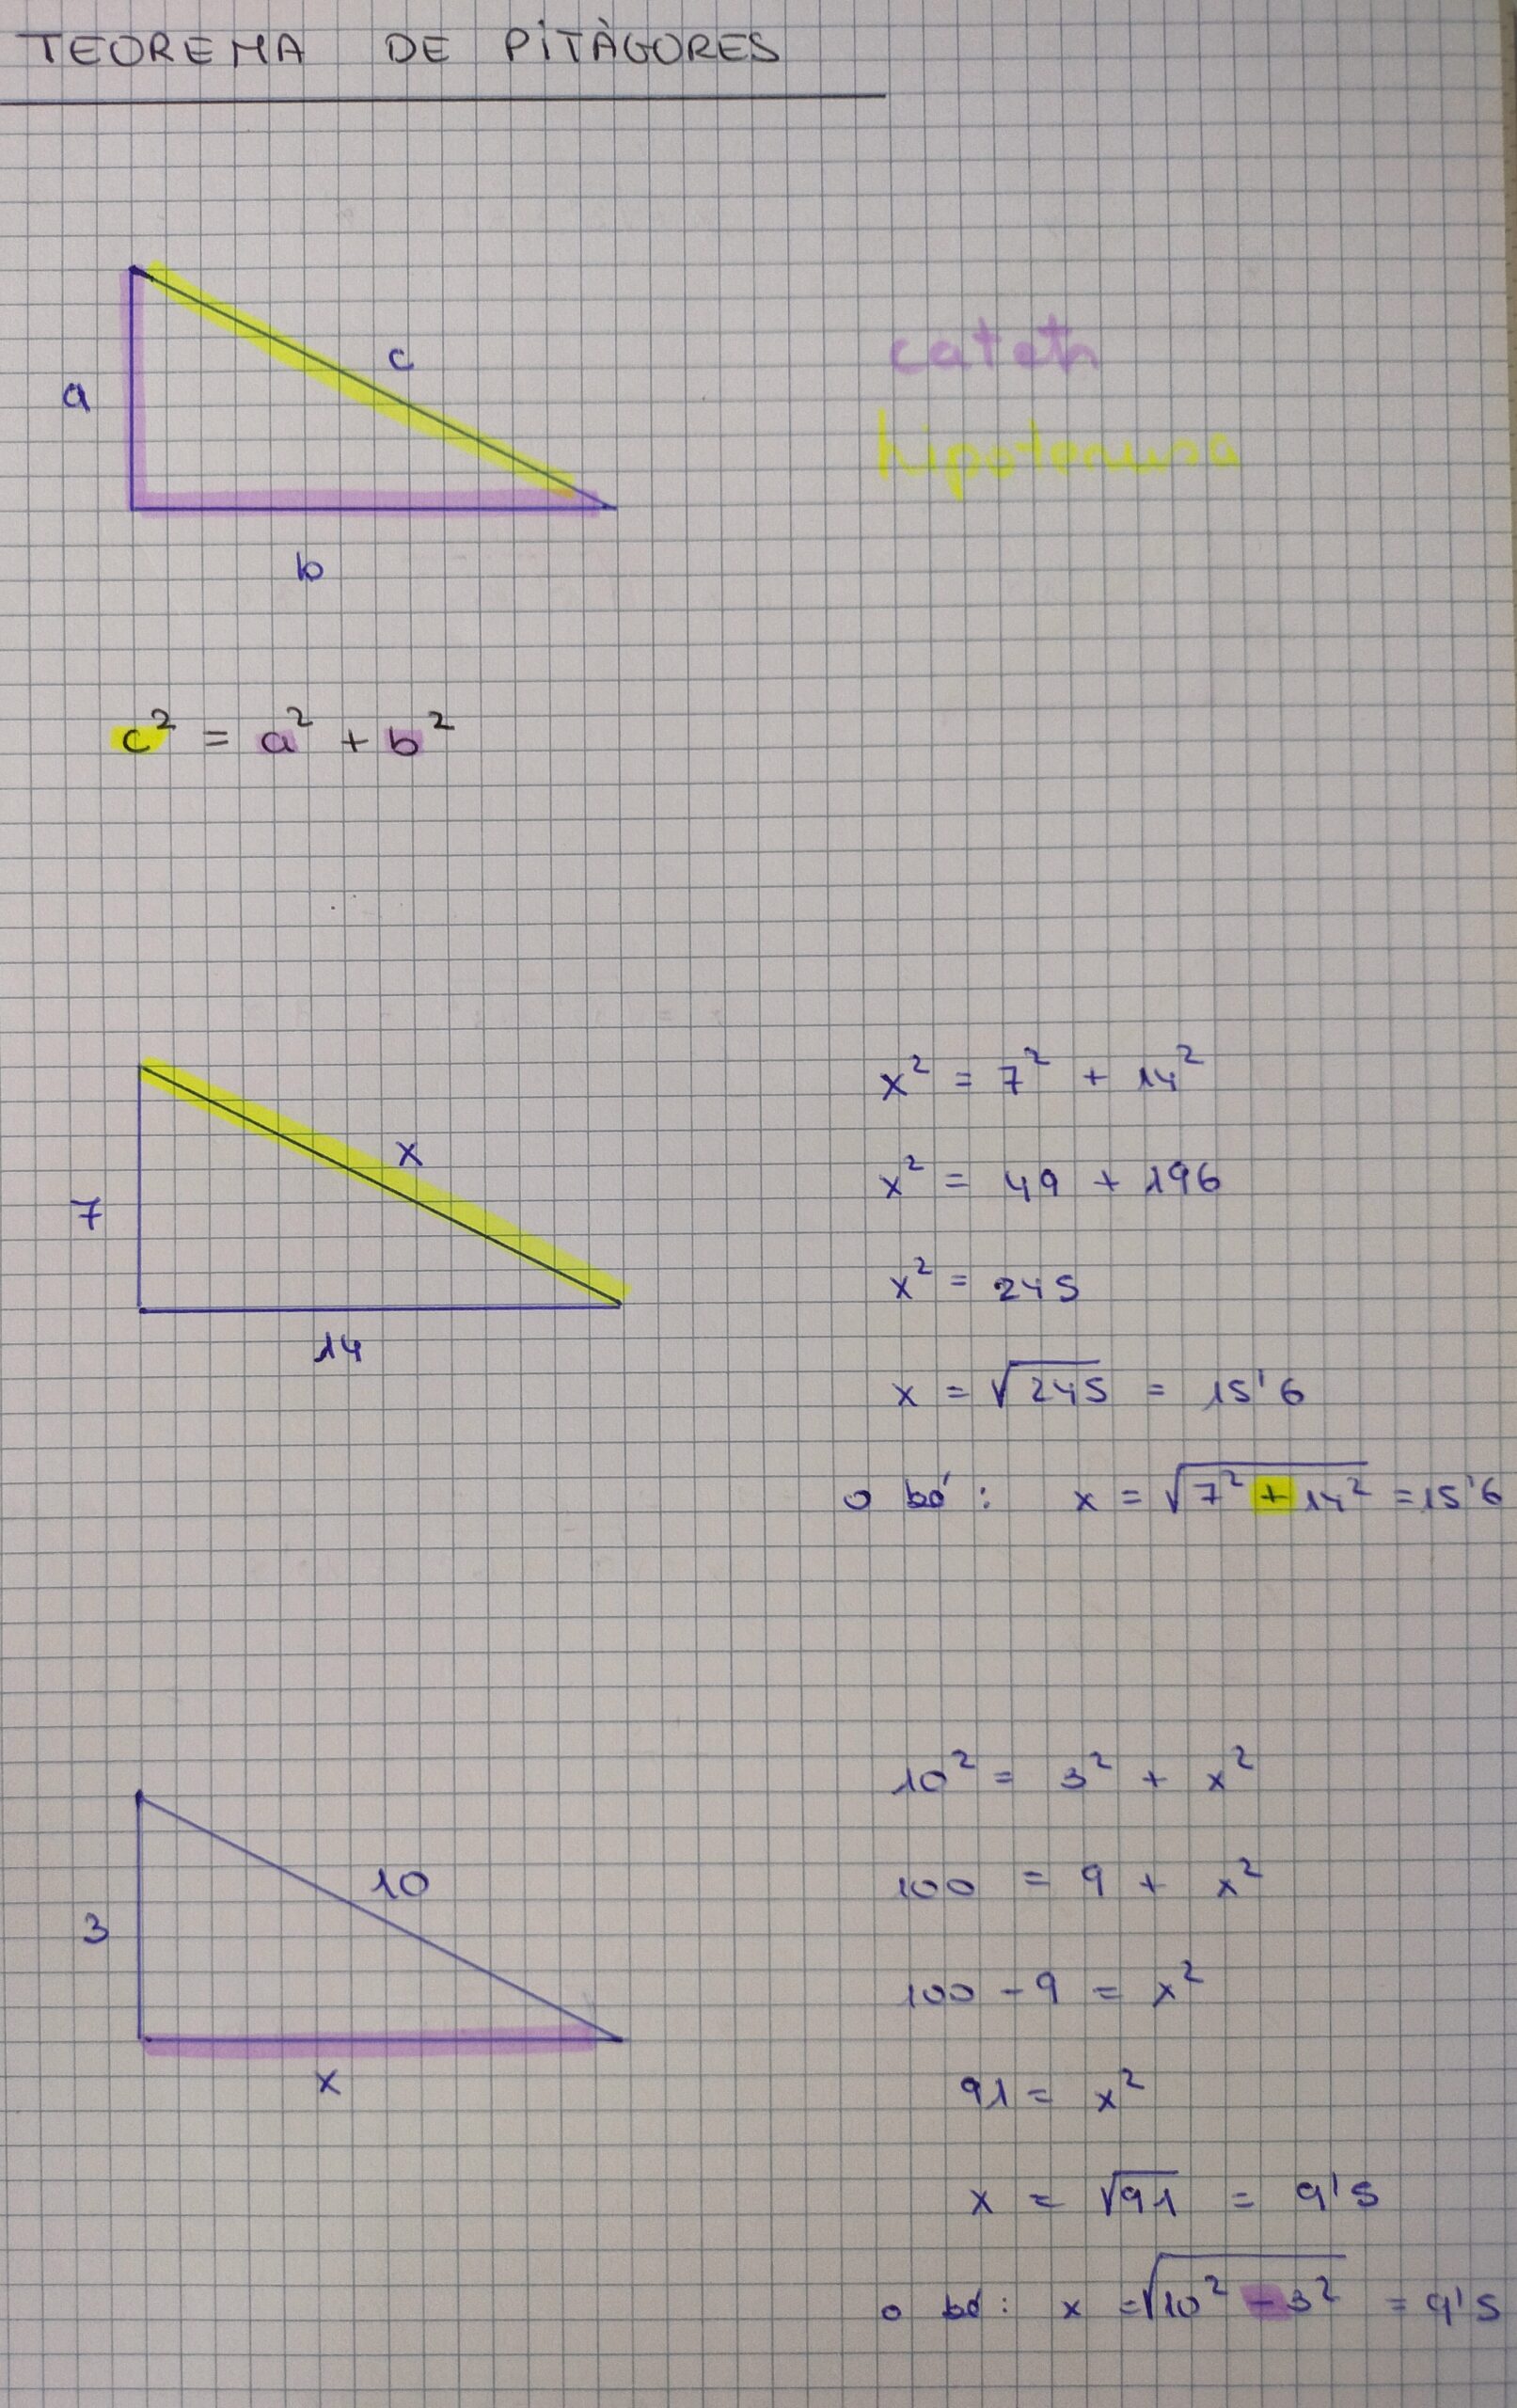 TEOREMA DE PITÀGORES
c
a
b
catets
hipotenusa
c² = a² + b²
x
7
14
x² = 7² + 14²
x² = 49 + 196
x² = 245
x = √245 = 15'6
o bé: x = √7² + 14² = 15'6
10
3
x
10² = 3² + x²
100 = 9 + x²
100 - 9 = x²
91 = x²
x = √91 = 9'5
o bé: x = √10² - 3² = 9'5